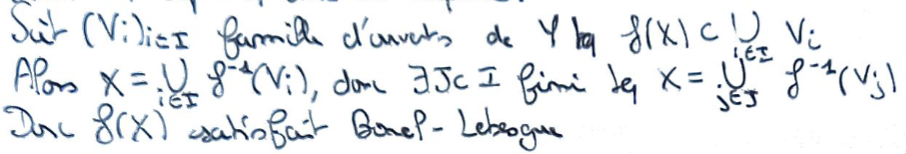 Soit (Vi)i∈I famille d'ouverts de Y tq f(X) ⊂ ⋃i∈I Vi
Alors X = ⋃i∈I f⁻¹(Vi), donc ∃J⊂I fini tq X = ⋃j∈J f⁻¹(Vj)
Donc f(X) satisfait Borel-Lebesgue